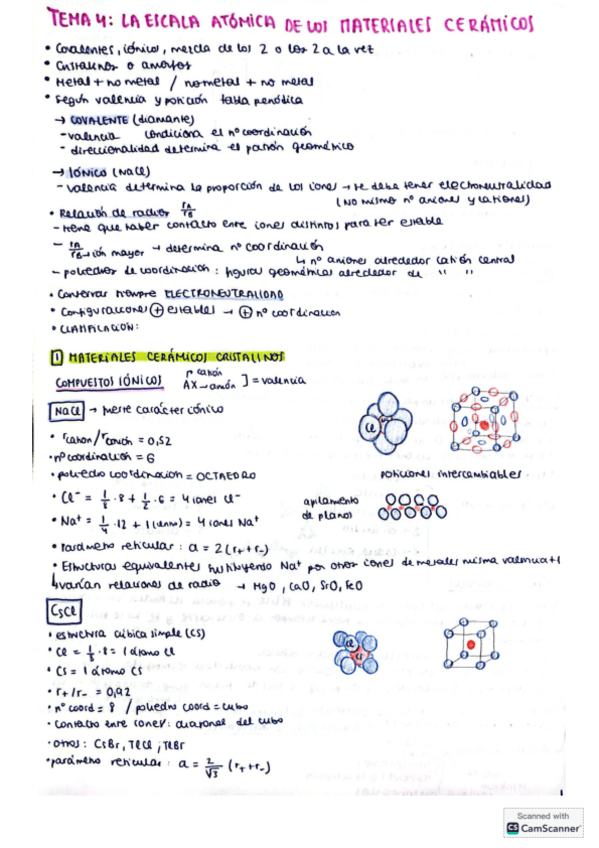 TEMA 4: LA ESCALA ATÓMICA DE LOS MATERIALES CERÁMICOS
• Covalentes, iónico, mezcla de los 2 o los 2 a la vez
• Cristalinos o amorfos
• Metal + no metal / no metal + no metal
• Según valencia y posición tabla periódica
→ COVALENTE (diamante)
- valencia condiciona el nº coordinación
- direccionalidad determina el patrón geométrico
→ IÓNICO (NaCl)
- valencia determina la proporción de los iones → se debe tener electroneutralidad
(No mismo nº aniones y cationes)
• Relación de radios rA/rB
- tiene que haber contacto entre iones distintos para ser estable
- rA/rB → ión mayor → determina nº coordinación
↳ nº aniones alrededor catión central
- poliedros de coordinación: figuras geométricas alrededor de " "
• Conservar siempre ELECTRONEUTRALIDAD
• Configuraciones ⊕ estables → ⊕ nº coordinación
• CLASIFICACIÓN:
1 MATERIALES CERÁMICOS CRISTALINOS
COMPUESTOS IÓNICOS
catión
AX → anión ] = valencia
NaCl → fuerte carácter iónico
• rcatión/ranión = 0,52
• nº coordinación = 6
• poliedro coordinación = OCTAEDRO
• Cl⁻ = 1/8 · 8 + 1/2 · 6 = 4 iones Cl⁻
• Na⁺ = 1/4 · 12 + 1 (centro) = 4 iones Na⁺
Cl
posiciones intercambiables
apilamento
de planos
• Parámetro reticular: a = 2 (r₊ + r₋)
• Estructuras equivalentes sustituyendo Na⁺ por otros iones de metales misma valencia +1
↳ varían relaciones de radio → MgO, CaO, SrO, FeO
CsCl
• estructura cúbica simple (CS)
• Cl = 1/8 · 8 = 1 átomo Cl
• Cs = 1 átomo Cs
• r₊/r₋ = 0,92
• nº coord = 8 / poliedro coord = cubo
• Contacto entre iones: diagonal del cubo
• otros: CsBr, TlCl, TlBr
• parámetro reticular: a = 2/√3 (r₊ + r₋)
Cl
Cs
1
Scanned with
CS CamScanner